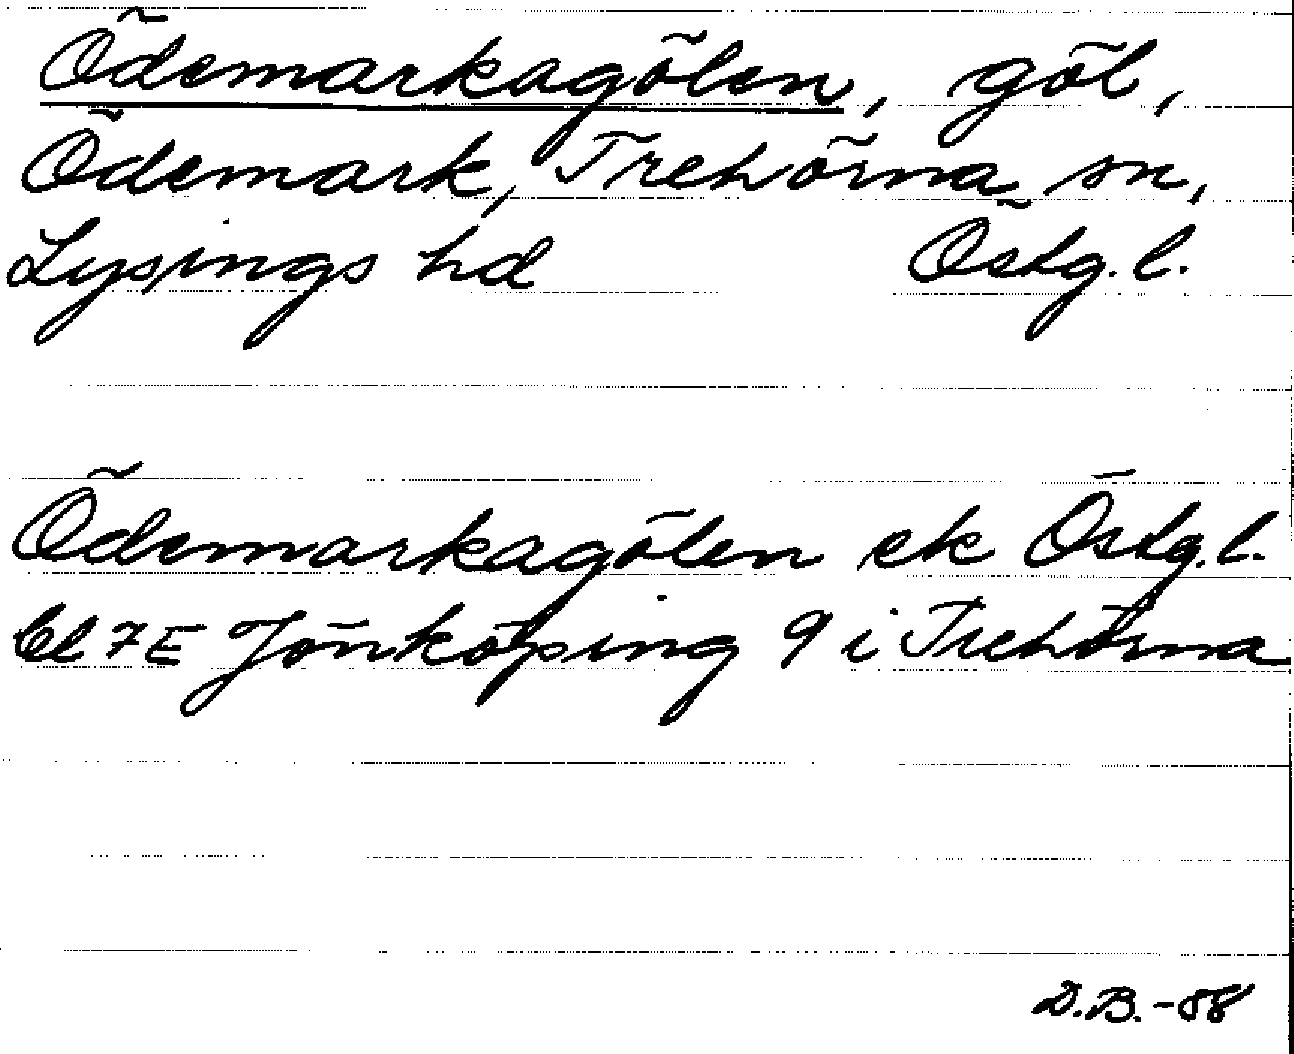 Ödemarkagölen, göl,
Ödemark, Trehörna sn,
Lysings hd Östg.l.
Ödemarkagölen ek Östg.l.
bl 7E Jönköping 9 i Trehörna
D.B.-88